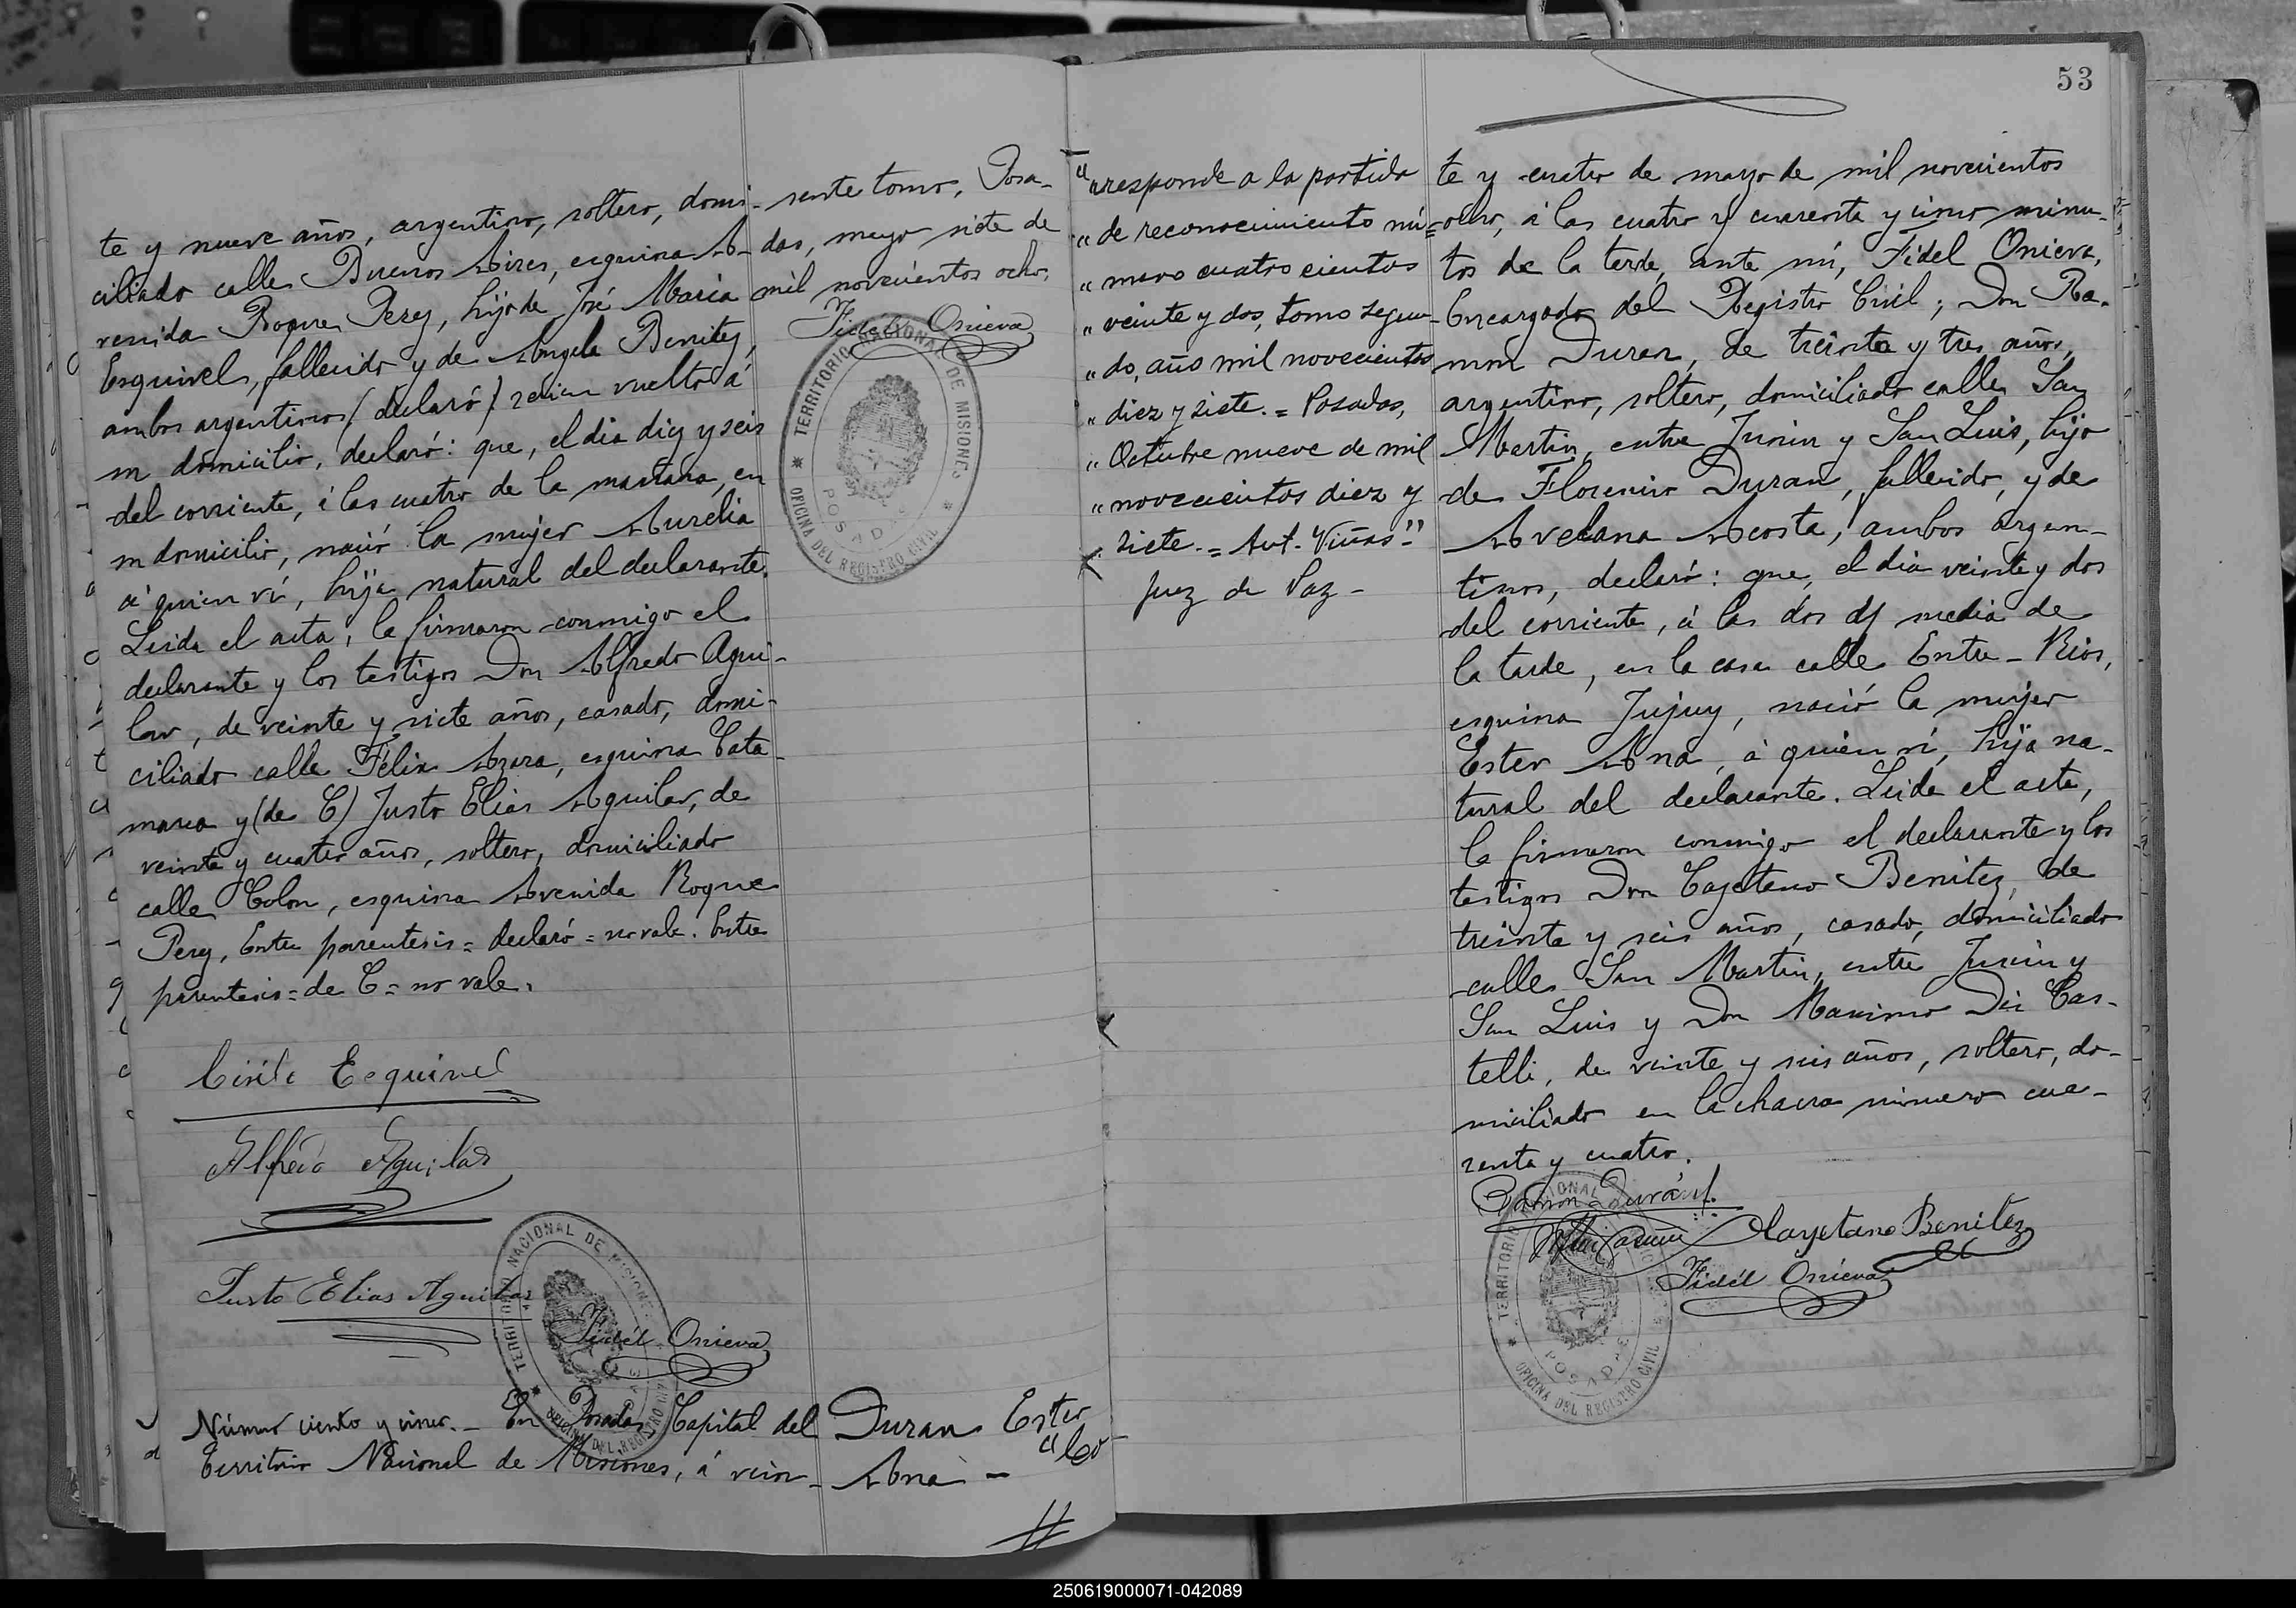 te y nueve años, argentino, soltero, domi-
ciliado calle Buenos Aires, esquina A-
venida Roque Perez, hijo de José Maria
Esquivel, fallecido y de Angela Benitez,
ambos argentinos (declaró) recien vuelto á
su domicilio, declaró: que, el dia diez y seis
del corriente, á las cuatro de la mañana, en
su domicilio, nació la mujer Aurelia
á quien ví, hija natural del declarante.
Leida el acta, la firmaron conmigo el
declarante y los testigos Don Alfredo Agui-
lar, de veinte y siete años, casado, domi-
ciliado calle Félix Azara, esquina Cata-
marca y (de C) Justo Elias Aguilar, de
veinte y cuatro años, soltero, domiciliado
calle Colon, esquina Avenida Roque
Perez, Entre parentesis = declaró = no vale. Entre
parentesis = de C = no vale.
Esquivel
Alfredo Aguilar
Justo Elias Aguilar
Fidél Onieva
TERRITORIO NACIONAL DE MISIONES
POSADAS
OFICINA DEL REGISTRO CIVIL
Número ciento y cinco. - En Posadas Capital del
Territorio Nacional de Misiones, á vein-
sente tomo, Posa-
das, mayo siete de
mil novecientos ocho.
Fidel Onieva
TERRITORIO NACIONAL DE MISIONES
POSADAS
OFICINA DEL REGISTRO CIVIL
Duran Ester
Ana -
"Co-
53
"rresponde a la partida
" de reconocimiento nú=
" mero cuatro cientos
" veinte y dos, tomo segun-
" do, año mil novecientos
" diez y siete. = Posadas,
" Octubre nueve de mil
" novecientos diez y
siete. = Ant. Viñas"
Juez de Paz -
te y cuatro de mayo de mil novecientos
ocho, á las cuatro y cuarenta y cinco minu-
tos de la tarde, ante mí, Fidel Onieva,
Encargado del Registro Civil; Don Ra-
mon Duran, de treinta y tres años,
argentino, soltero, domiciliado calle San
Martin, entre Junin y San Luis, hijo
de Florencio Duran, fallecido, y de
Avelana Acosta, ambos argen-
tinos, declaró: que, el dia veinte y dos
del corriente, á las dos y media de
la tarde, en la casa calle Entre-Rios,
esquina Jujuy, nació la mujer
Ester Ana, á quien ví, hija na-
tural del declarante. Leida el acta,
la firmaron conmigo el declarante y los
testigos Don Cayetano Benitez, de
treinta y seis años, casado, domiciliado
calle San Martin, entre Junin y
San Luis y Don Maximo Cas-
telli, de veinte y seis años, soltero, do-
miciliado en la chacra número cua-
renta y cuatro.
Ramon Durán
Cayetano Benitez
Fidél Onieva
TERRITORIO NACIONAL
POSADAS
OFICINA DEL REGISTRO CIVIL
250619000071-042089